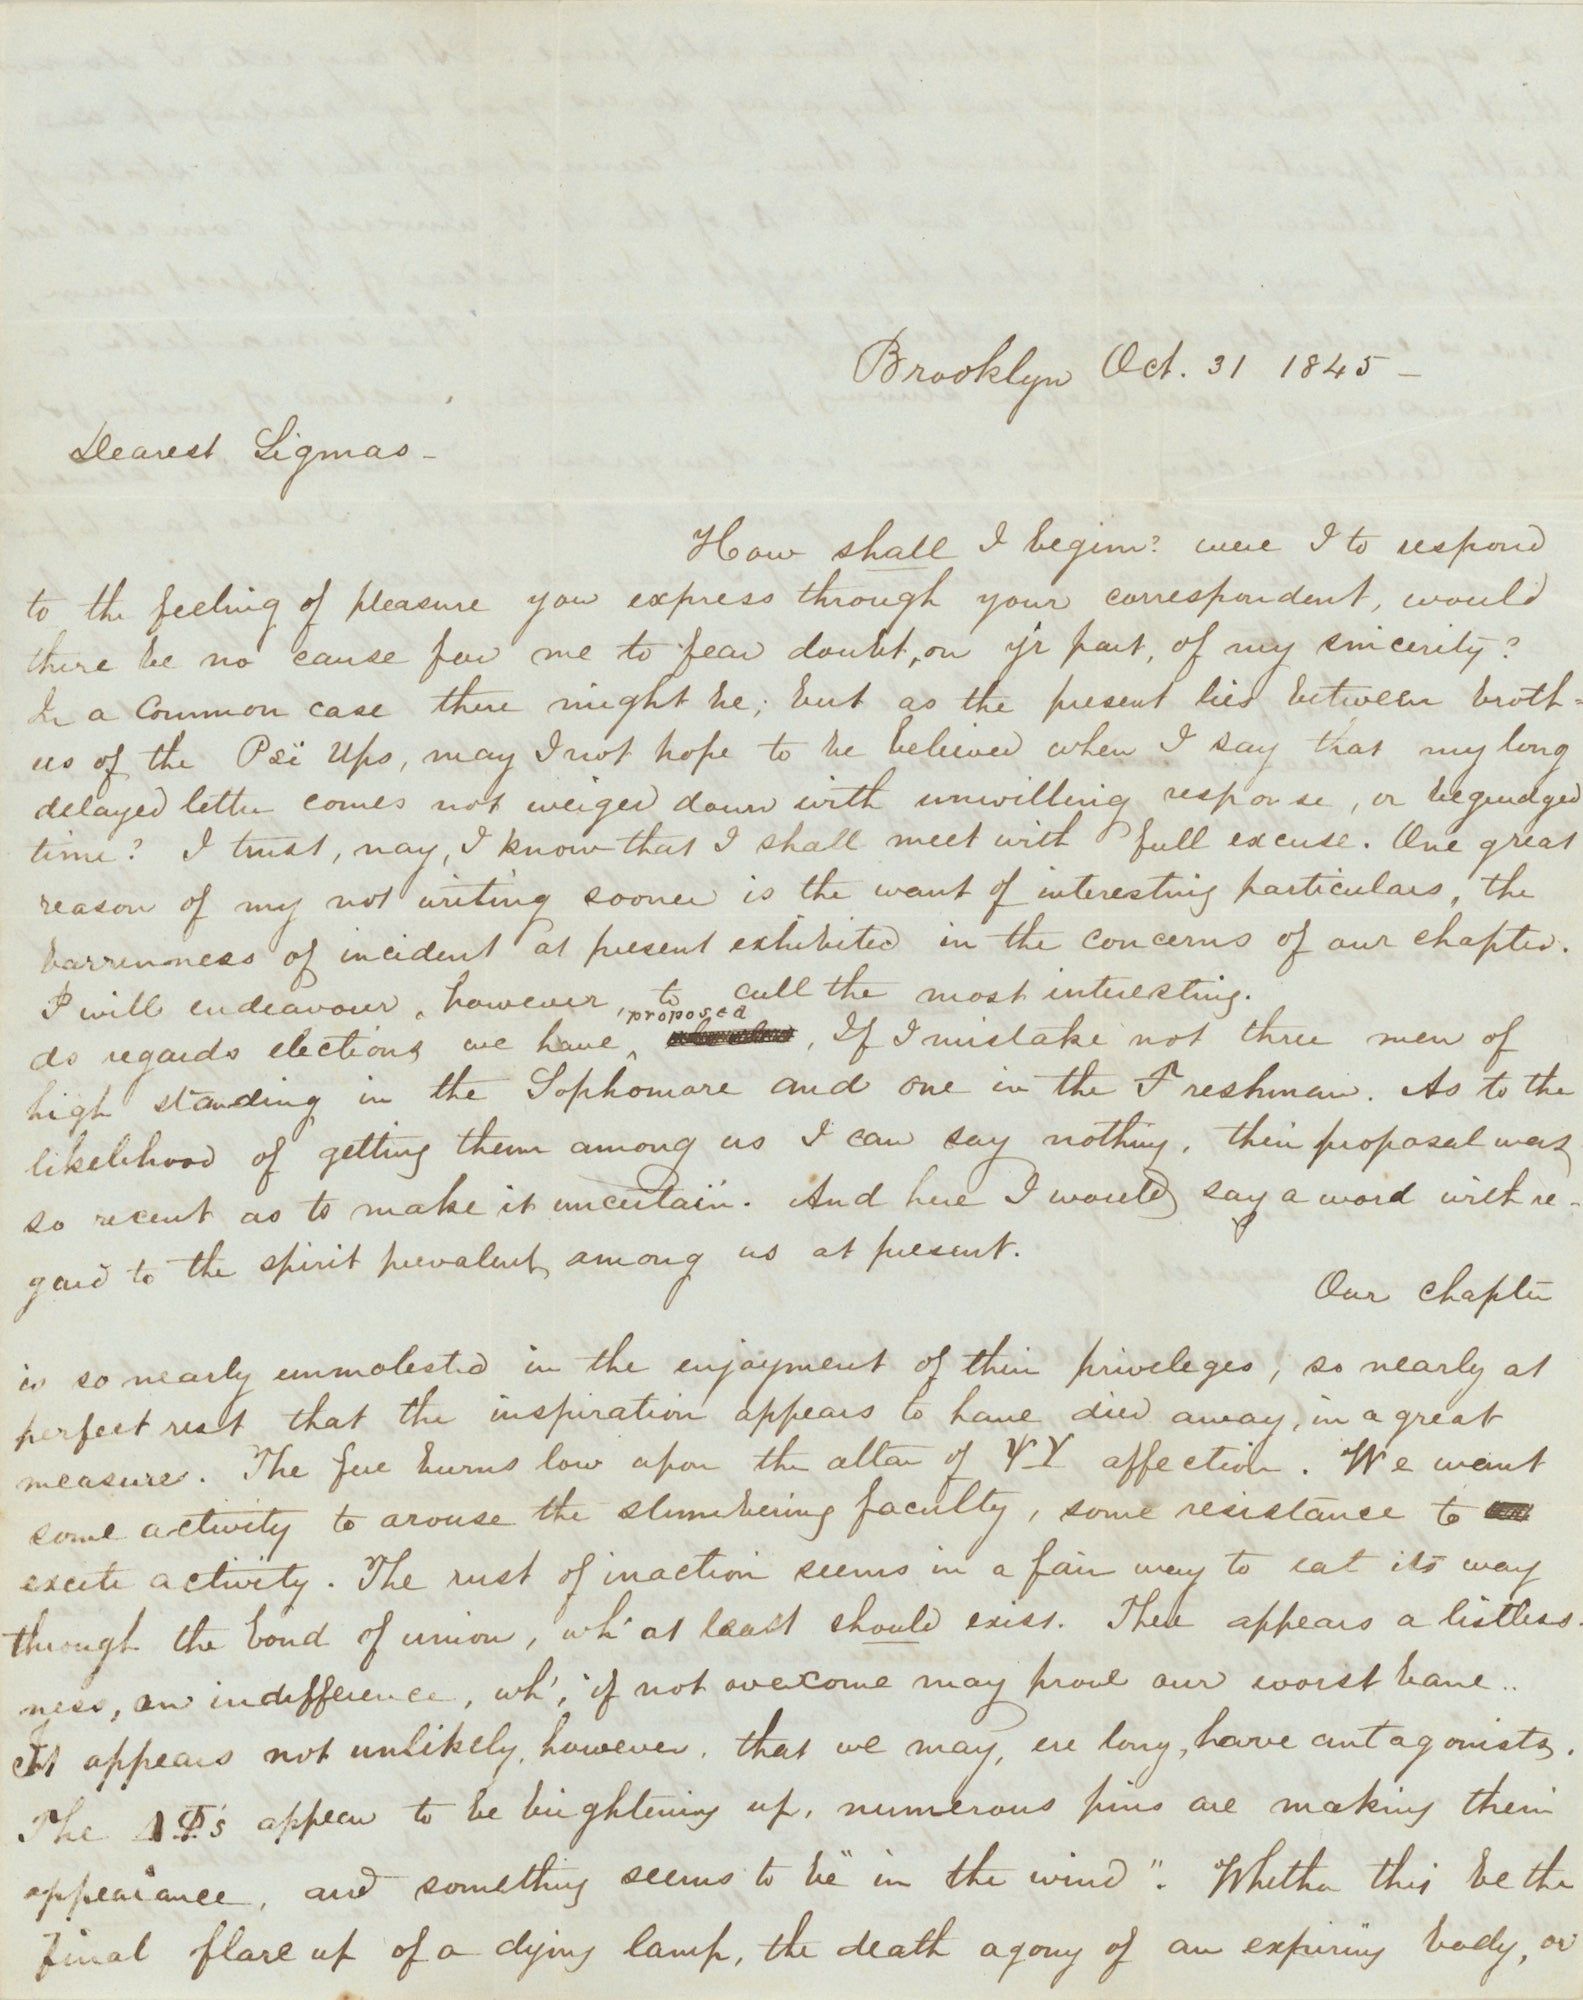 Brooklyn Oct. 31 1845 –
Dearest Sigmas –
How shall I begin? were I to respond
to the feeling of pleasure you express through your correspondent, would
there be no cause for me to fear doubt, on y'r part, of my sincerity?
In a common case there might be; but as the present lies between broth-
ers of the Psi Ups, may I not hope to be believed when I say that my long
delayed letter comes not weiged down with unwilling response, or begrudged
time? I trust, nay, I know that I shall meet with full excuse. One great
reason of my not writing sooner is the want of interesting particulars, the
barrenness of incident at present exhibited in the concerns of our chapter.
I will endeavour, however, to cull the most interesting.
As regards elections we have proposed, If I mistake not three men of
high standing in the Sophomore and one in the Freshman. As to the
likelihood of getting them among us I can say nothing, their proposal was
so recent as to make it uncertain. And here I would say a word with re-
gard to the spirit prevalent among us at present.
Our chapter
is so nearly unmolested in the enjoyment of their priveleges, so nearly at
perfect rest that the inspiration appears to have died away, in a great
measure. The fire burns low upon the altar of ΨΥ affection. We want
some activity to arouse the slumbering faculty, some resistance to
excite activity. The rust of inaction seems in a fair way to eat its way
through the bond of union, wh' at least should exist. There appears a listless-
ness, an indifference, wh', if not overcome may prove our worst bane..
It appears not unlikely, however, that we may, ere long, have antagonists.
The ΔΦ's appear to be brightening up, numerous pins are making their
appearance, and something seems to be "in the wind". Whether this be the
final flare up of a dying lamp, the death agony of an expiring body, or